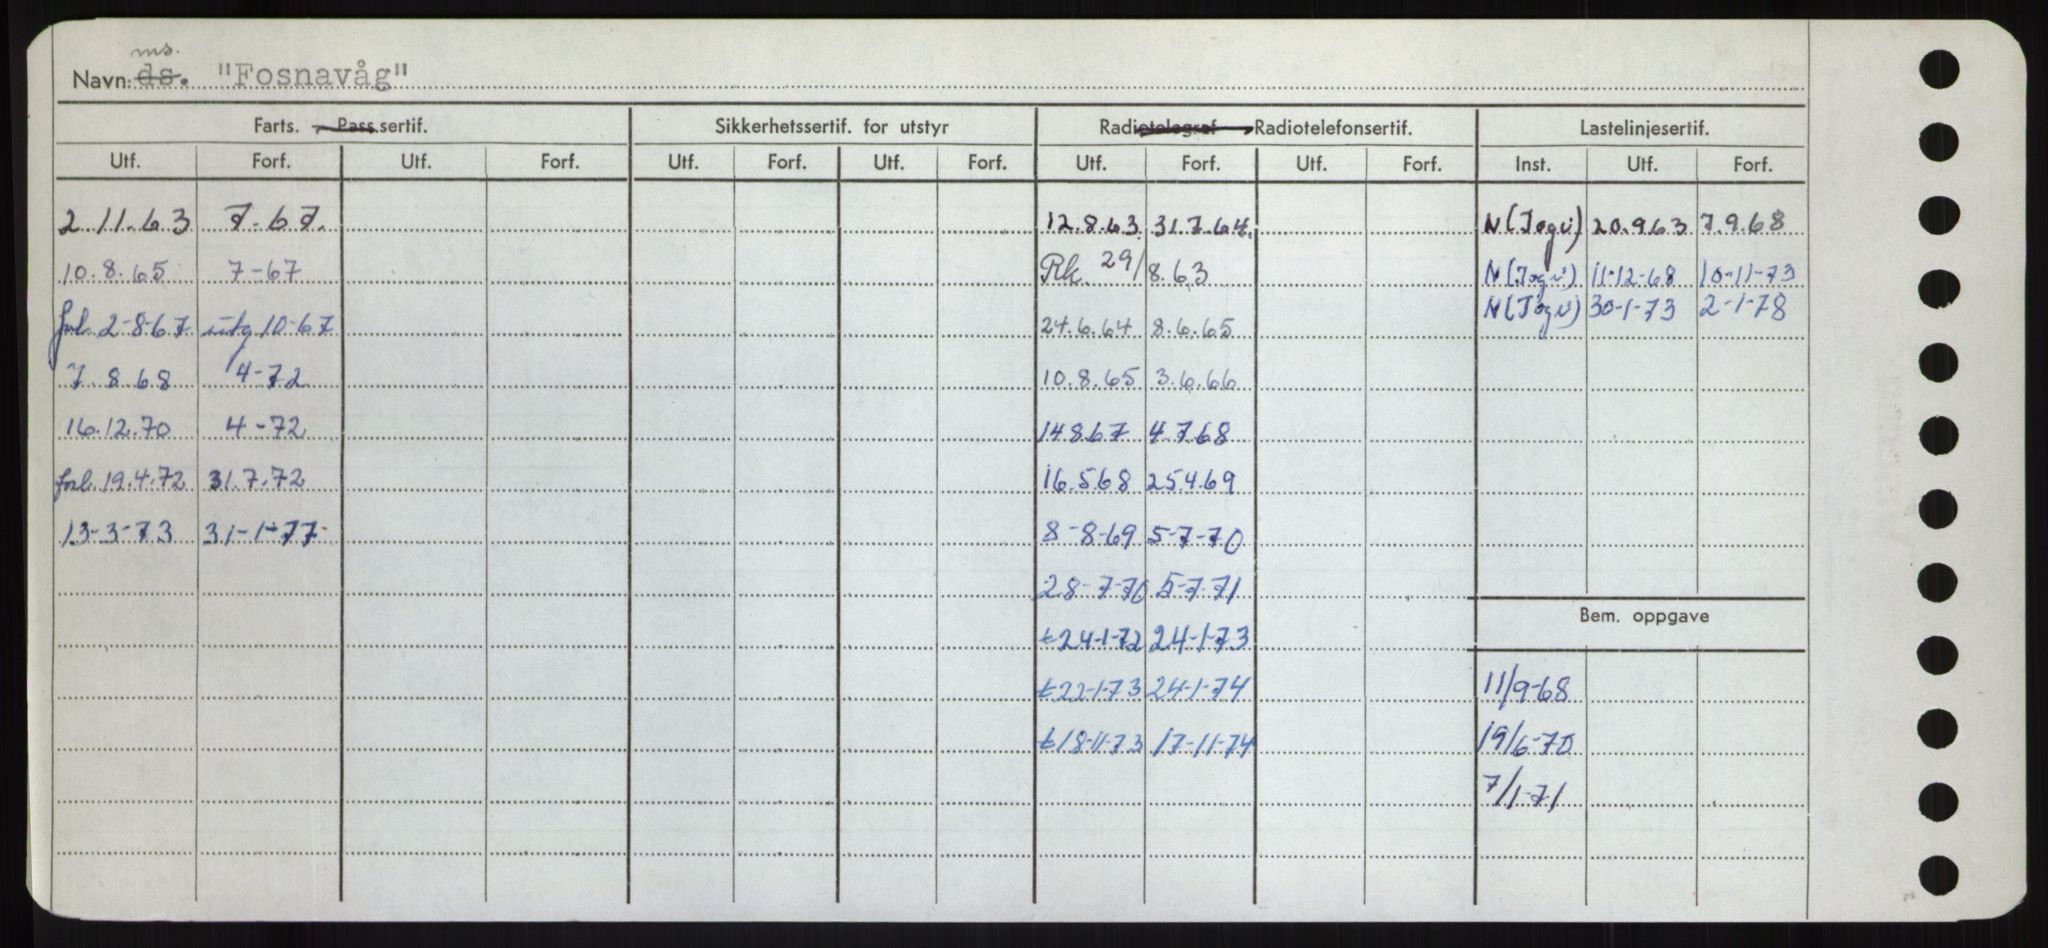 ms.
Navn: ds. "Fosnavåg"
Farts. Pass.sertif. Sikkerhetssertif. for utstyr Radiotelegraf Radiotelefonsertif. Lastelinjesertif.
Utf. Forf. Utf. Forf. Utf. Forf. Utf. Forf. Utf. Forf. Utf. Forf. Inst. Utf. Forf.
2.11.63 7-67. 12.8.63. 31.7.64. N(Jogvi) 20.963 7.9.68
10.8.65 7-67 Rk. 29/8.63 N(Jogvi) 11-12-68 10-11-73
N(Jogvi) 30-1-73 2-1-78
forl. 2-8-67 utg 10-67 24.6.64 8.6.65
7.8.68 4-72 10.8.65 3.6.66
16.12.70 4-72 14867 4.768
forl. 19.4.72 31.7.72 16.568 25469
13-3-73 31-1-77 8-8-69 5-7-70
28-7-70 5-7-71
Bem. oppgave
t24-1-72 24-1-73
t22-1-73 24-1-74 11/9-68
t18-11-73 17-11-74 19/6-70
7/1-71